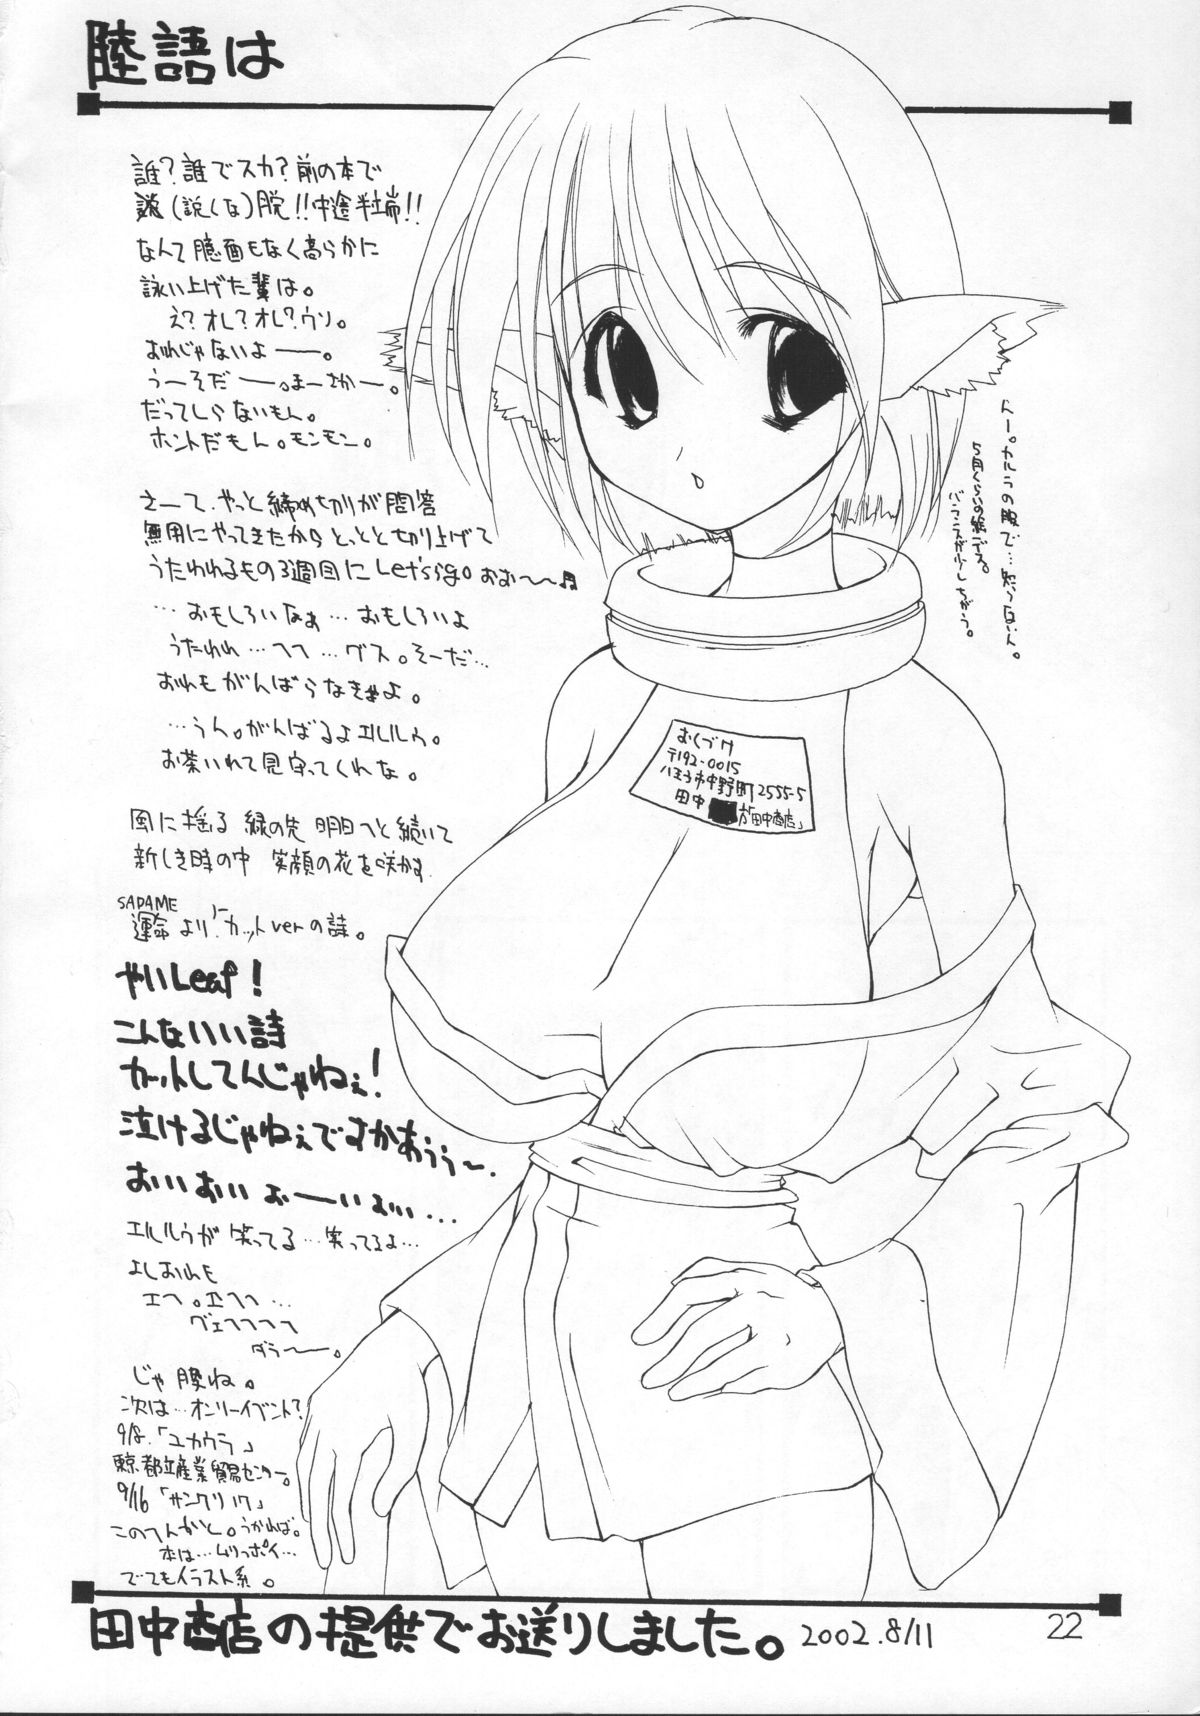 陸語は
誰?誰でスカ?前の本で
(説くな)脱!!中途半端!!
なんて臆面もなく高らかに
詠い上げた輩は。
え?オレ?オレ?ウソ。
おれじゃないよ――。
うーそだ――。まーさかー。
だってしらないもん。
ホントだもん。モンモン。
さーて、やっと締め切りが問答
無用にやってきたからとっとと切り上げて
うたわれるもの3週目にLet'sgo おお〜〜♬
…おもしろいなぁ…おもしろいよ
うたわれ…へへ…グス。そーだ…
おれもがんばらなきゃよ。
…うん。がんばるよエルルゥ。
お茶いれて見守ってくれな。
風に揺る 緑の先 明日へと続いて
新しき時の中 笑顔の花を咲かす
SADAME
運命 より、カットverの詩。
やいLeaf!
こんないい詩
カットしてんじゃねぇ!
泣けるじゃねぇですかあぅぅ〜。
おいおいぉ――いぉぃ…
エルルゥが笑ってる…笑ってるよ…
よしおれも
エへ。エへへ…
グェへへへへ
ダラ〜―。
じゃ 腰ね。
次は…オンリーイベント?
9/8.「ユカウラ」
東京都立産業貿易センター。
9/16「サンクリ17」
このへんかと。うかれば。
本は…ムリっポイ…
でてもイラスト系。
んー。カルラの服で…知らないん。
5月くらいの絵デス。
バランスが少しちがう。
おくづけ
〒192-0015
八王子市中野町2555-5
田中 が「田中商店」
田中商店の提供でお送りしました。
2002.8/11
22